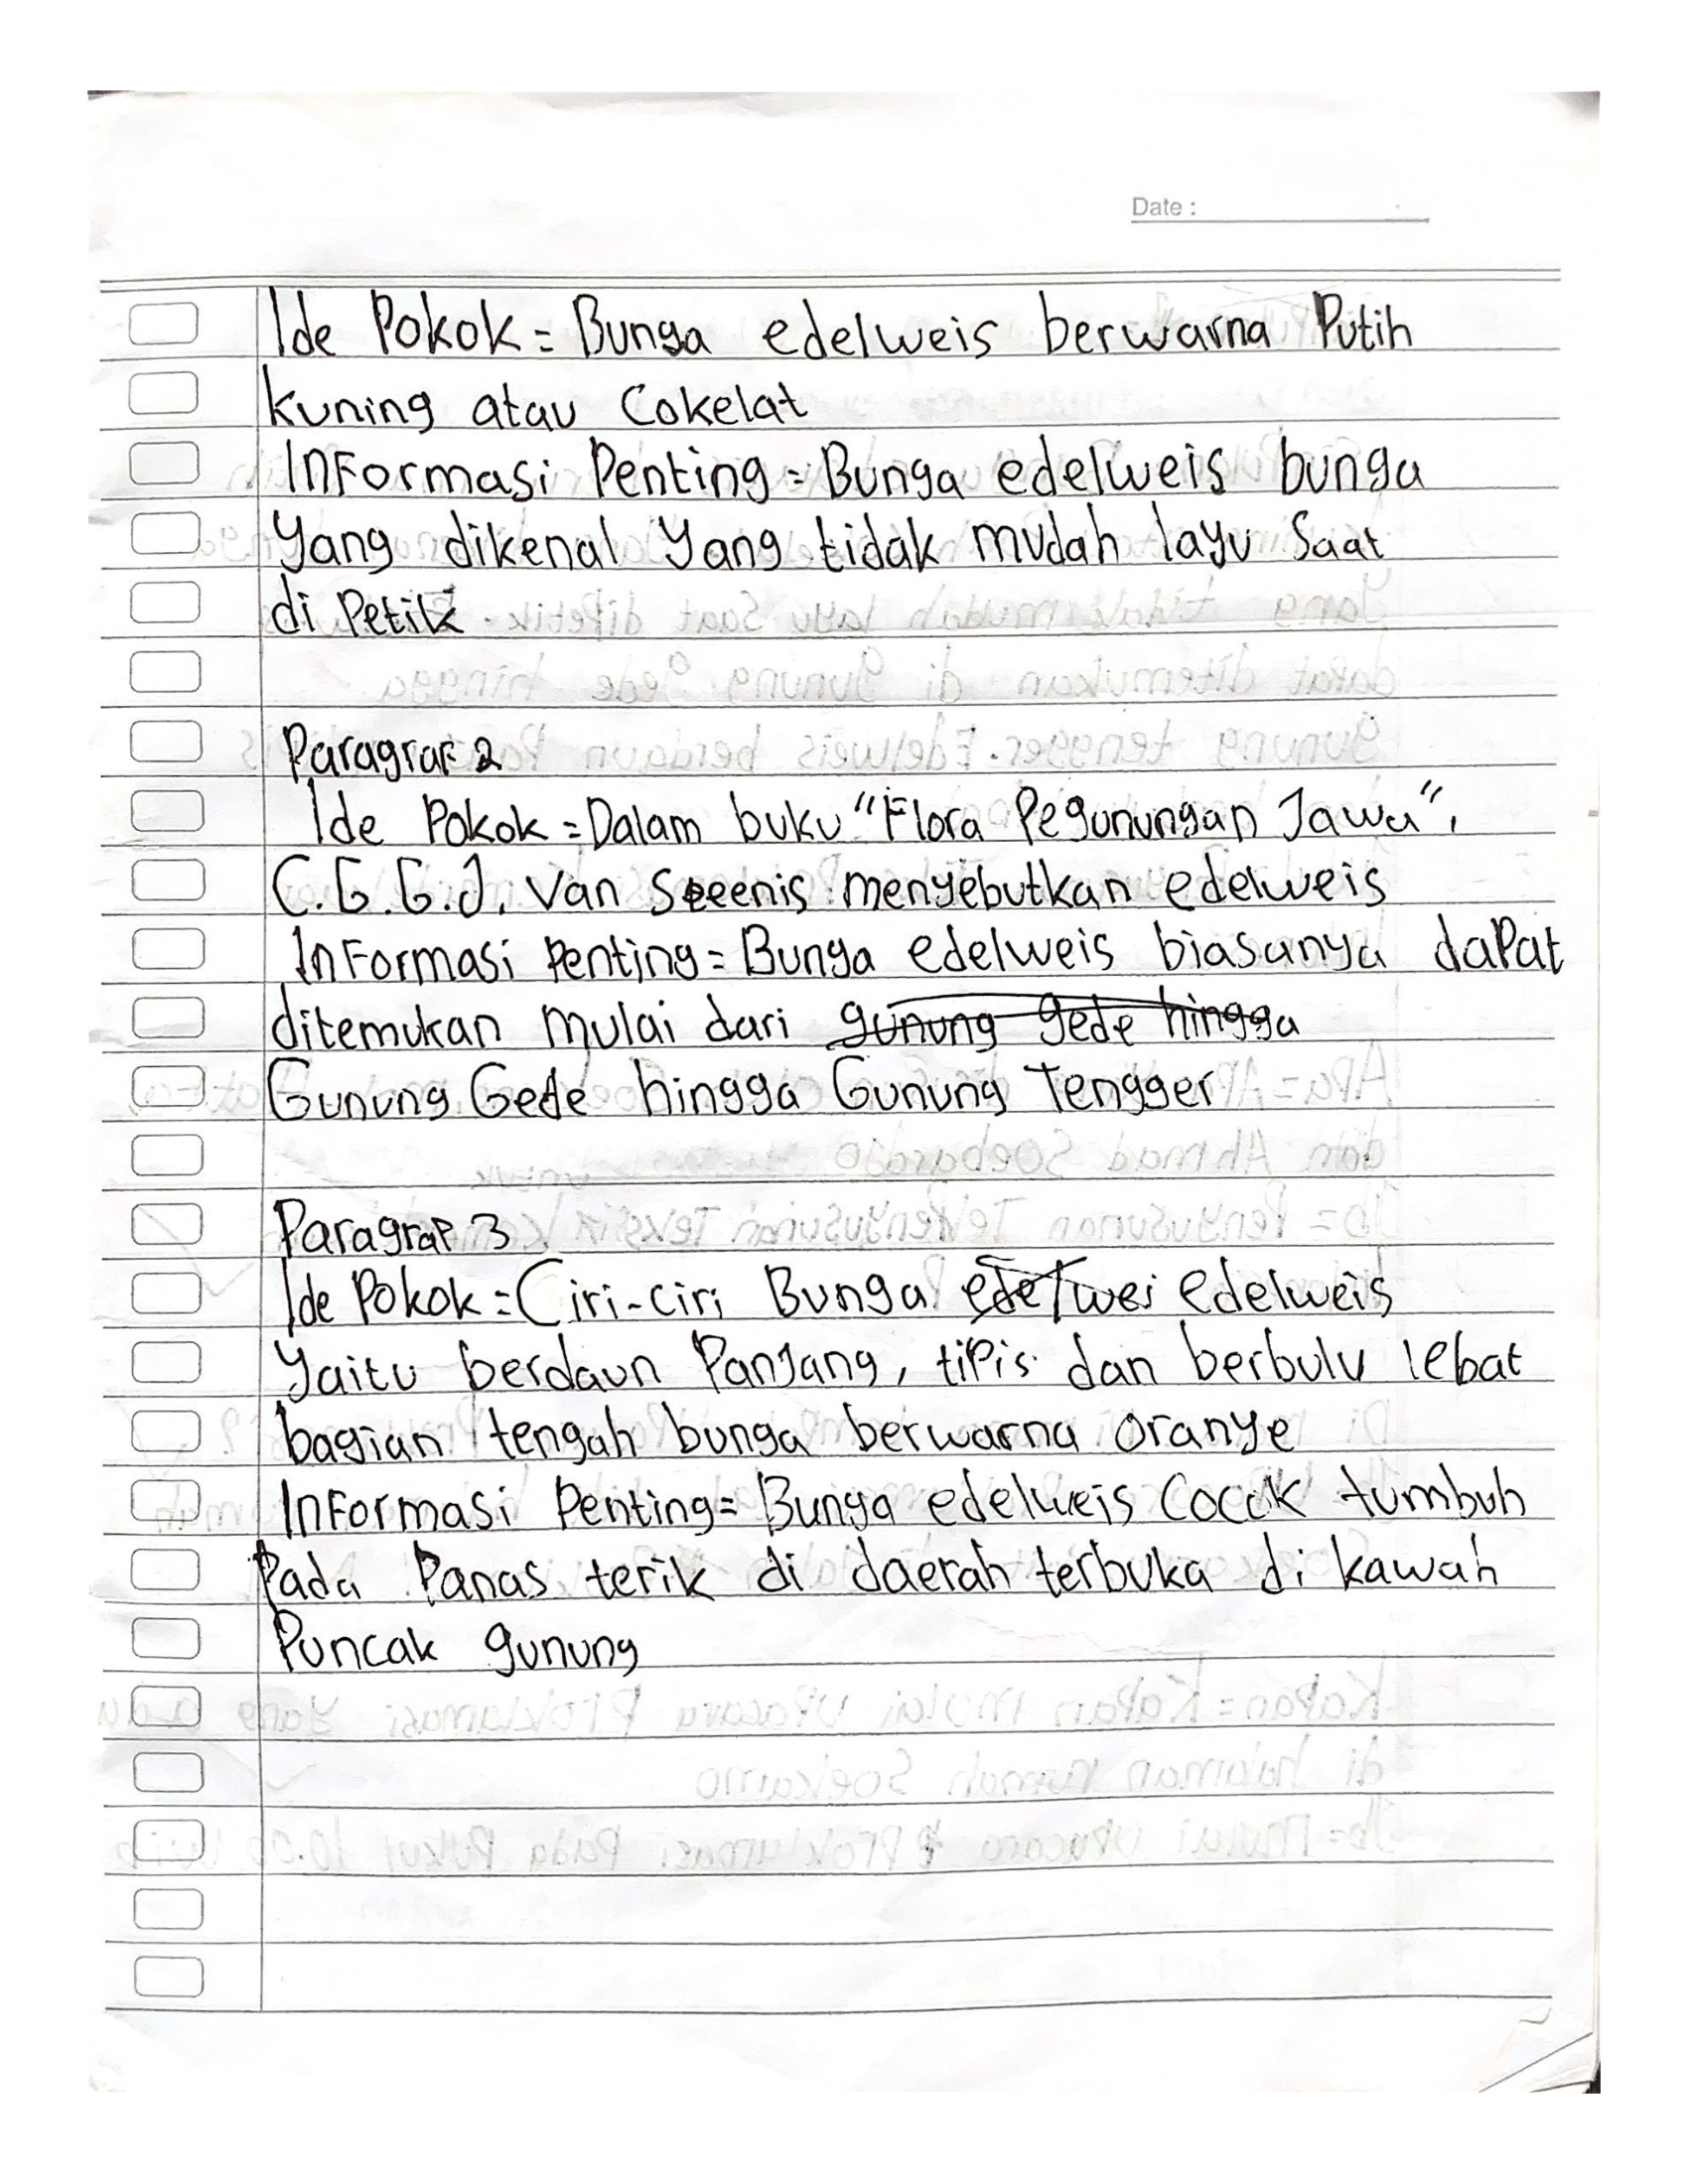 Date :
Ide Pokok = Bunga edelweis berwarna Putih
kuning atau Cokelat
Informasi Penting = Bunga edelweis bunga
yang dikenal yang tidak mudah layu Saat
di Petik
Paragraf 2
Ide Pokok = Dalam buku "Flora Pegunungan Jawa",
C.G.G.J. Van Steenis menyebutkan edelweis
Informasi Penting = Bunga edelweis biasanya dapat
ditemukan mulai dari gunung gede hingga
Gunung Gede hingga Gunung Tengger
Paragraf 3
Ide Pokok = Ciri-ciri Bunga edelwei edelweis
yaitu berdaun Panjang, tipis dan berbulu lebat
bagian tengah bunga berwarna oranye
Informasi Penting = Bunga edelweis Cocok tumbuh
Pada Panas terik di daerah terbuka di kawah
Puncak gunung